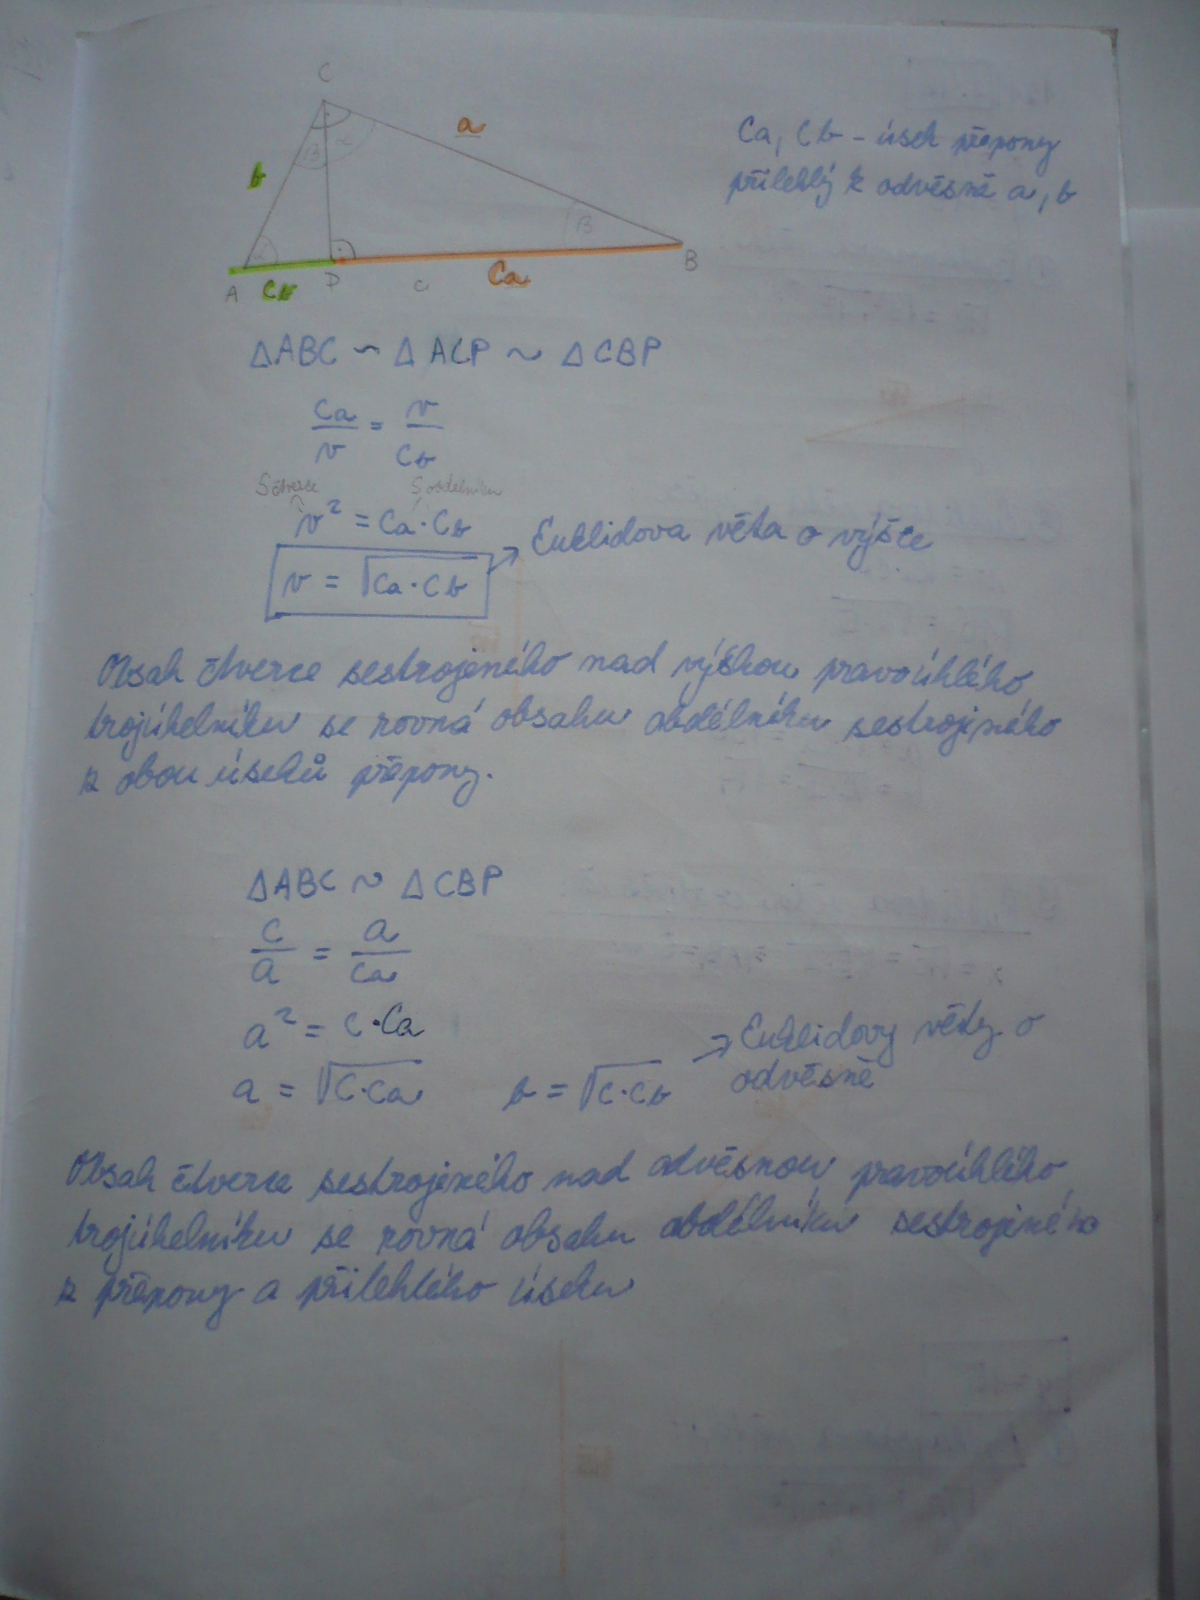 C
a
b
β
α
α
β
A
cb
P
c
ca
B
ca, cb - úsek přepony
přilehlý k odvěsně a, b
△ABC ~ △ACP ~ △CBP
ca/v = v/cb
Sčtverce Sobdélníku
v² = ca·cb
v = √ca·cb → Euklidova věta o výšce
Obsah čtverce sestrojeného nad výškou pravoúhlého
trojúhelníku se rovná obsahu obdélníku sestrojeného
z obou úseků přepony.
△ABC ~ △CBP
c/a = a/ca
a² = c·ca
a = √c·ca b = √c·cb → Euklidovy věty o
odvěsně
Obsah čtverce sestrojeného nad odvěsnou pravoúhlého
trojúhelníku se rovná obsahu obdélníku sestrojeného
z přepony a přilehlého úseku